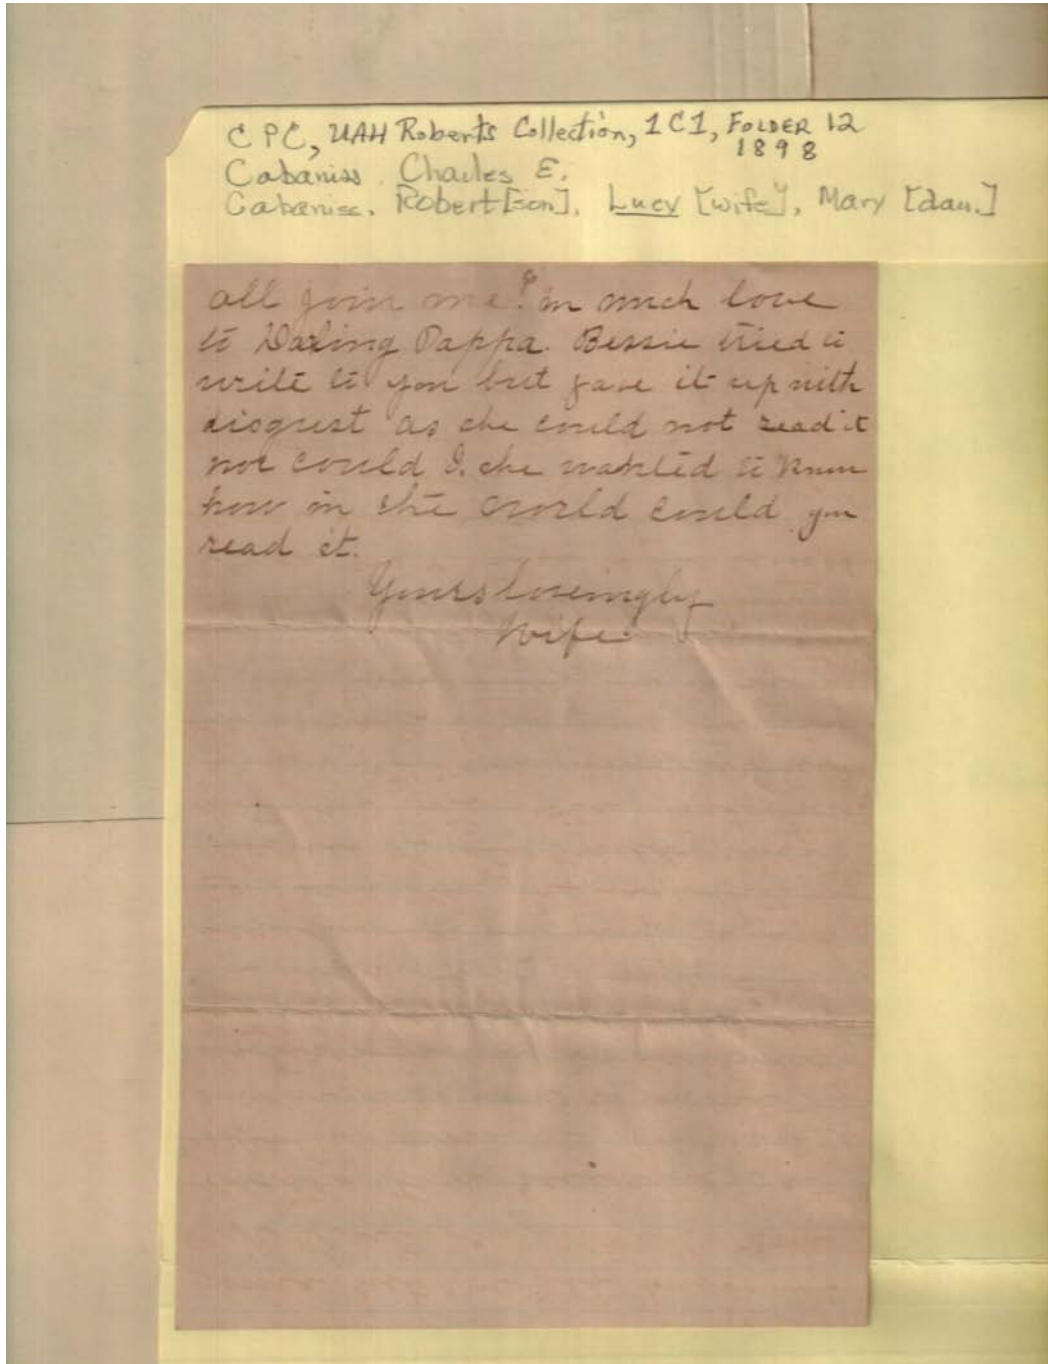 CPC, UAH Roberts Collection, 1C1, FOLDER 12
1898
Cabaniss, Charles E.
Cabaniss, Robert [son], Lucy [wife], Mary [dau.]
all join me in much love
to Darling Pappa. Bessie tried to
write to you but gave it up with
disgust as she could not read it
nor could I. she wanted to know
how in the world could you
read it.
Yours lovingly
Wife